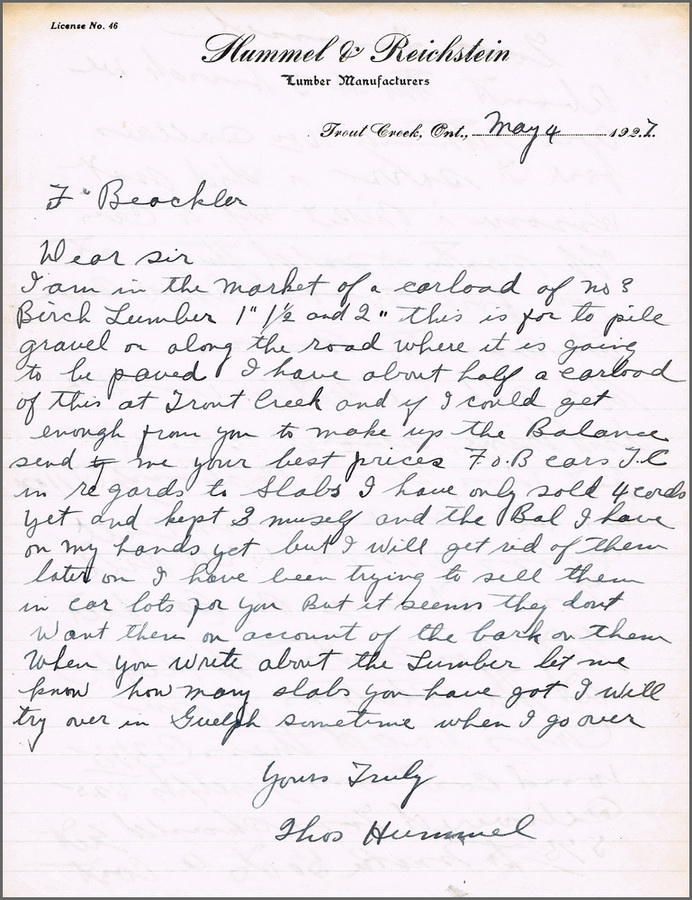 License No. 46
Hummel & Reichstein
Lumber Manufacturers
Trout Creek, Ont., May 4 1927.
F Beackler
Dear sir
I am in the market of a carload of no 3
Birch Lumber 1" 1½ and 2" this is for to pile
gravel on along the road where it is going
to be paved I have about half a carload
of this at Trout Creek and if I could get
enough from you to make up the Balance
send me your best prices F.o.B cars T.C
in regards to Slabs I have only sold 4 cords
yet and kept 3 muself and the Bal I have
on my hands yet but I will get rid of them
later on I have been trying to sell them
in car lots for you But it seems they dont
Want them on account of the bark on them
When you write about the Lumber let me
know how many slabs you have got I will
try over in Guelph sometime when I go over
Yours Truly
Thos Hummel